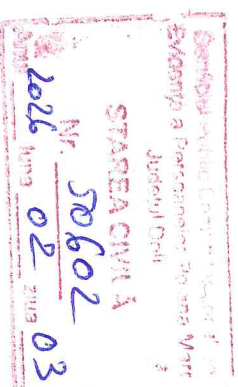 Evidența a Persoanelor
Județul Dolj
STAREA CIVILĂ
Nr. 50602
Anul 2026 luna 02 ziua 03